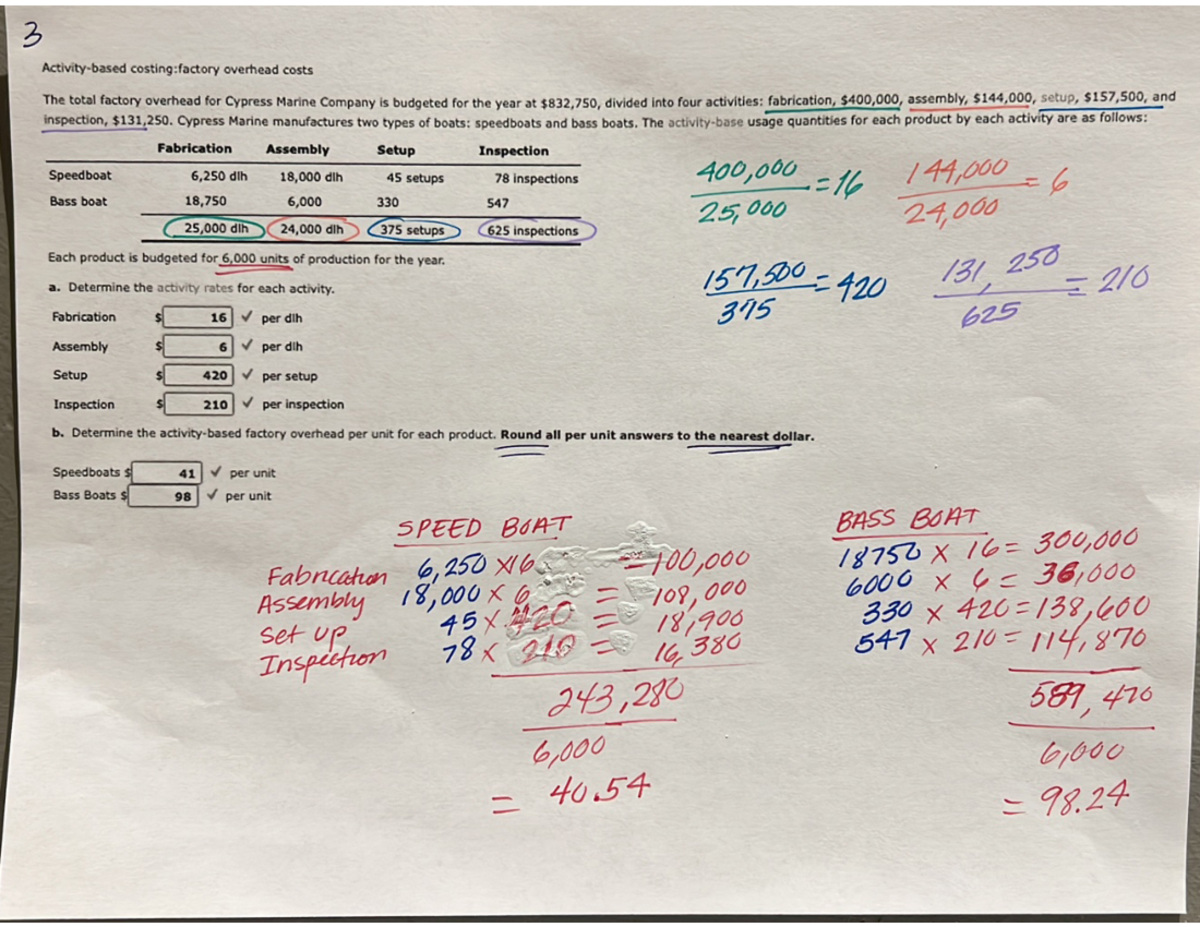 3
Activity-based costing:factory overhead costs
The total factory overhead for Cypress Marine Company is budgeted for the year at $832,750, divided into four activities: fabrication, $400,000, assembly, $144,000, setup, $157,500, and
inspection, $131,250. Cypress Marine manufactures two types of boats: speedboats and bass boats. The activity-base usage quantities for each product by each activity are as follows:
Fabrication Assembly Setup Inspection
Speedboat 6,250 dlh 18,000 dlh 45 setups 78 inspections
Bass boat 18,750 6,000 330 547
25,000 dlh 24,000 dlh 375 setups 625 inspections
400,000 = 16 144,000 = 6
25,000 24,000
Each product is budgeted for 6,000 units of production for the year.
157,500 = 420 131,250 = 210
375 625
a. Determine the activity rates for each activity.
Fabrication $ 16 ✓ per dlh
Assembly $ 6 ✓ per dlh
Setup $ 420 ✓ per setup
Inspection $ 210 ✓ per inspection
b. Determine the activity-based factory overhead per unit for each product. Round all per unit answers to the nearest dollar.
Speedboats $ 41 ✓ per unit
Bass Boats $ 98 ✓ per unit
SPEED BOAT
Fabrication 6,250 X16 = 100,000
Assembly 18,000 X 6 = 108,000
Set up 45 X 420 = 18,900
Inspection 78 X 210 = 16,380
243,280
6,000
= 40.54
BASS BOAT
18750 X 16 = 300,000
6000 X 6 = 36,000
330 X 420 = 138,600
547 X 210 = 114,870
589,470
6,000
= 98.24